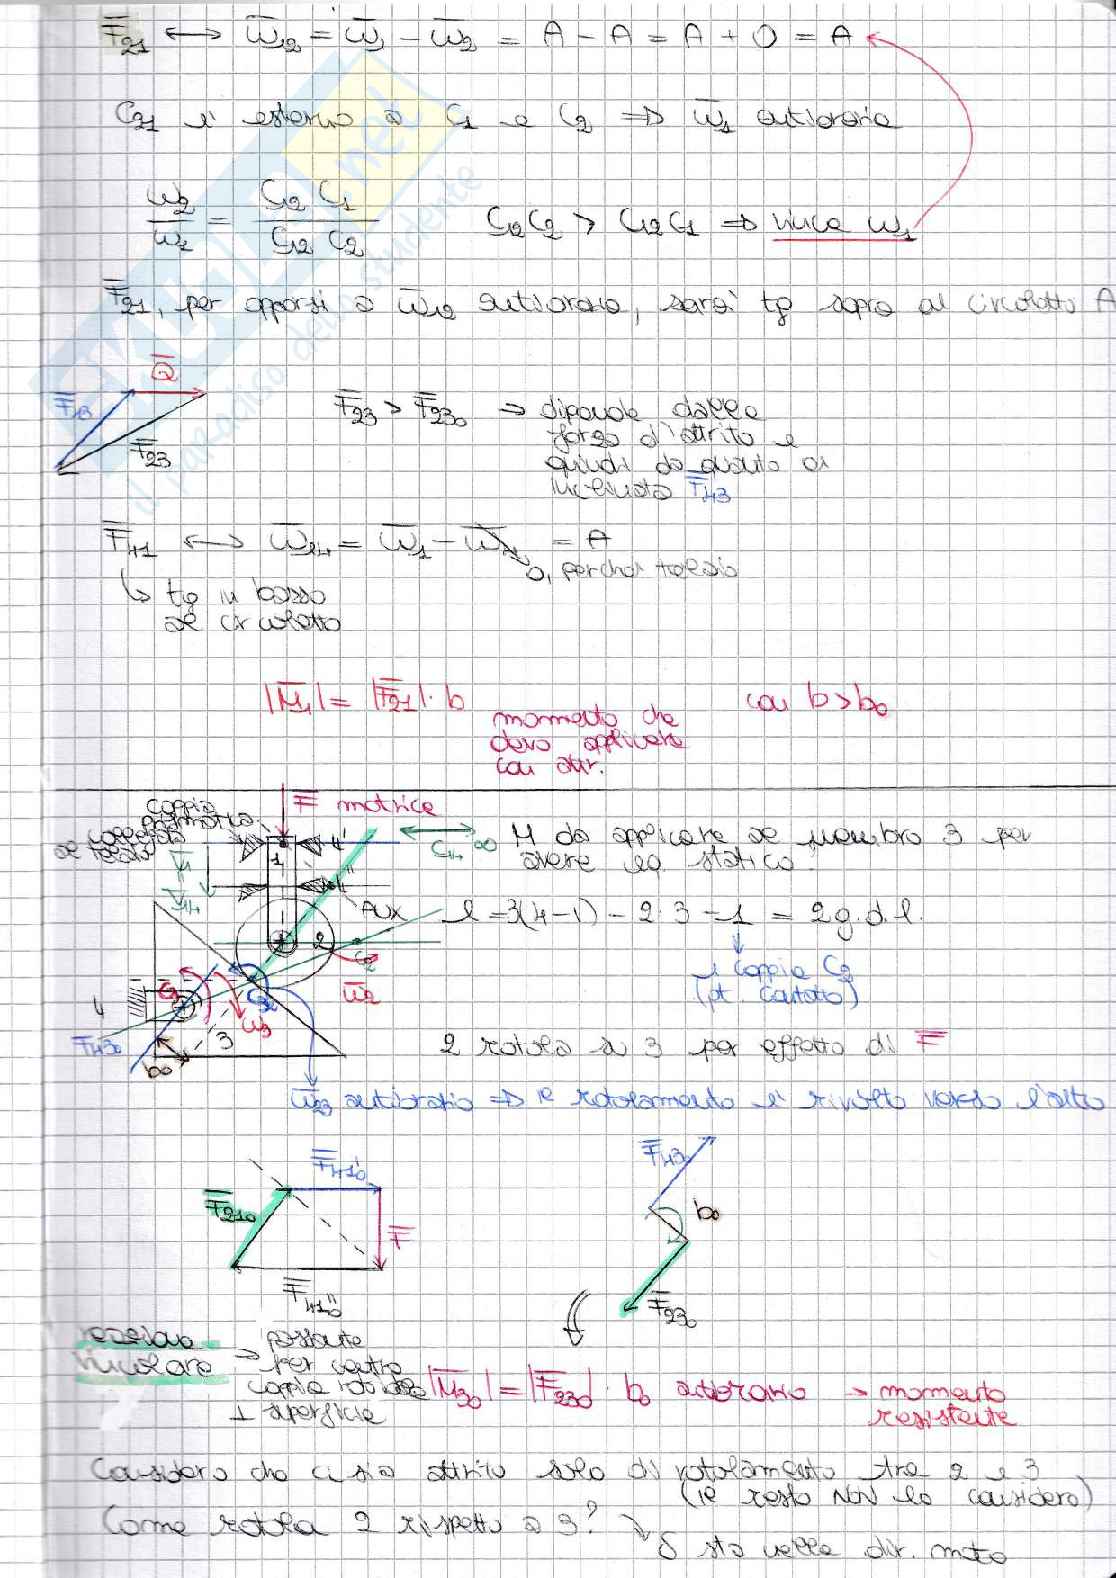 F̅21 ⟷ ω̅12 = ω̅1 − ω̅2 = A − A = A + O = A
C21 è esterno a C1 e C2 ⇒ ω̅1 antioraria
ω2/ω1 = C12 C1 / C12 C2    C12C2 > C12C1 ⇒ vince ω1
F̅21, per opporsi a ω̅12 antiorario, sarà tg sopra al circoletto A
Q̅
F̅43
F̅23
F̅23 > F̅230 ⇒ dipende dalla
forza d'attrito e
quindi da quanto ei
inclinata F̅43
F̅41 ⟷ ω̅14 = ω̅1 − ω̅4 = A
0, perché telaio
↳ tg in basso
al circoletto
|M̅1| = |F̅21| · b    con b > b0
momento che
devo applicare
con attr.
coppia
prismatica
al telaio
F̅ motrice
C14 ∞
M da applicare al membro 3 per
avere eq statico.
1
4'
4''
V̅14
AUX
l = 3(4−1) − 2·3 − 1 = 2 g.d.l.
2
C2
ω̅2
1 coppia C2
(pt. contatto)
4
ω̅3
F̅430
3
b0
2 rotola su 3 per effetto di F̅
ω̅23 antiorario ⇒ il rotolamento è rivolto verso l'alto
F̅41'0
F̅210
F̅
F̅41''0
F̅43
b0
F̅230
reazione
vincolare
→ passante
per centro
coppia rotoidale
⊥ superficie
|M̅30| = |F̅230| · b0 antiorario → momento
resistente
Considero che ci sia attrito solo di rotolamento tra 2 e 3
(il resto NON lo considero)
Come rotola 2 rispetto a 3?
↘ δ sta nella dir. moto
il paradiso dello studente
.net